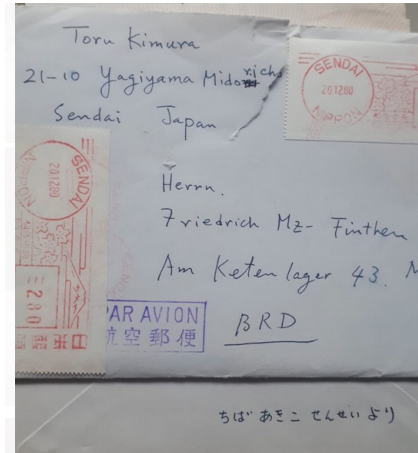 Toru Kimura
21-10 Yagiyama Midori
Sendai Japan
SENDAI
20.12.80
NIPPON
SENDAI
20.12.80
NIPPON
280
日本郵便
Herrn.
Friedrich Mz- Finthen
Am Ketenlager 43.
BRD
PAR AVION
航空郵便
ちば あきこ せんせい より